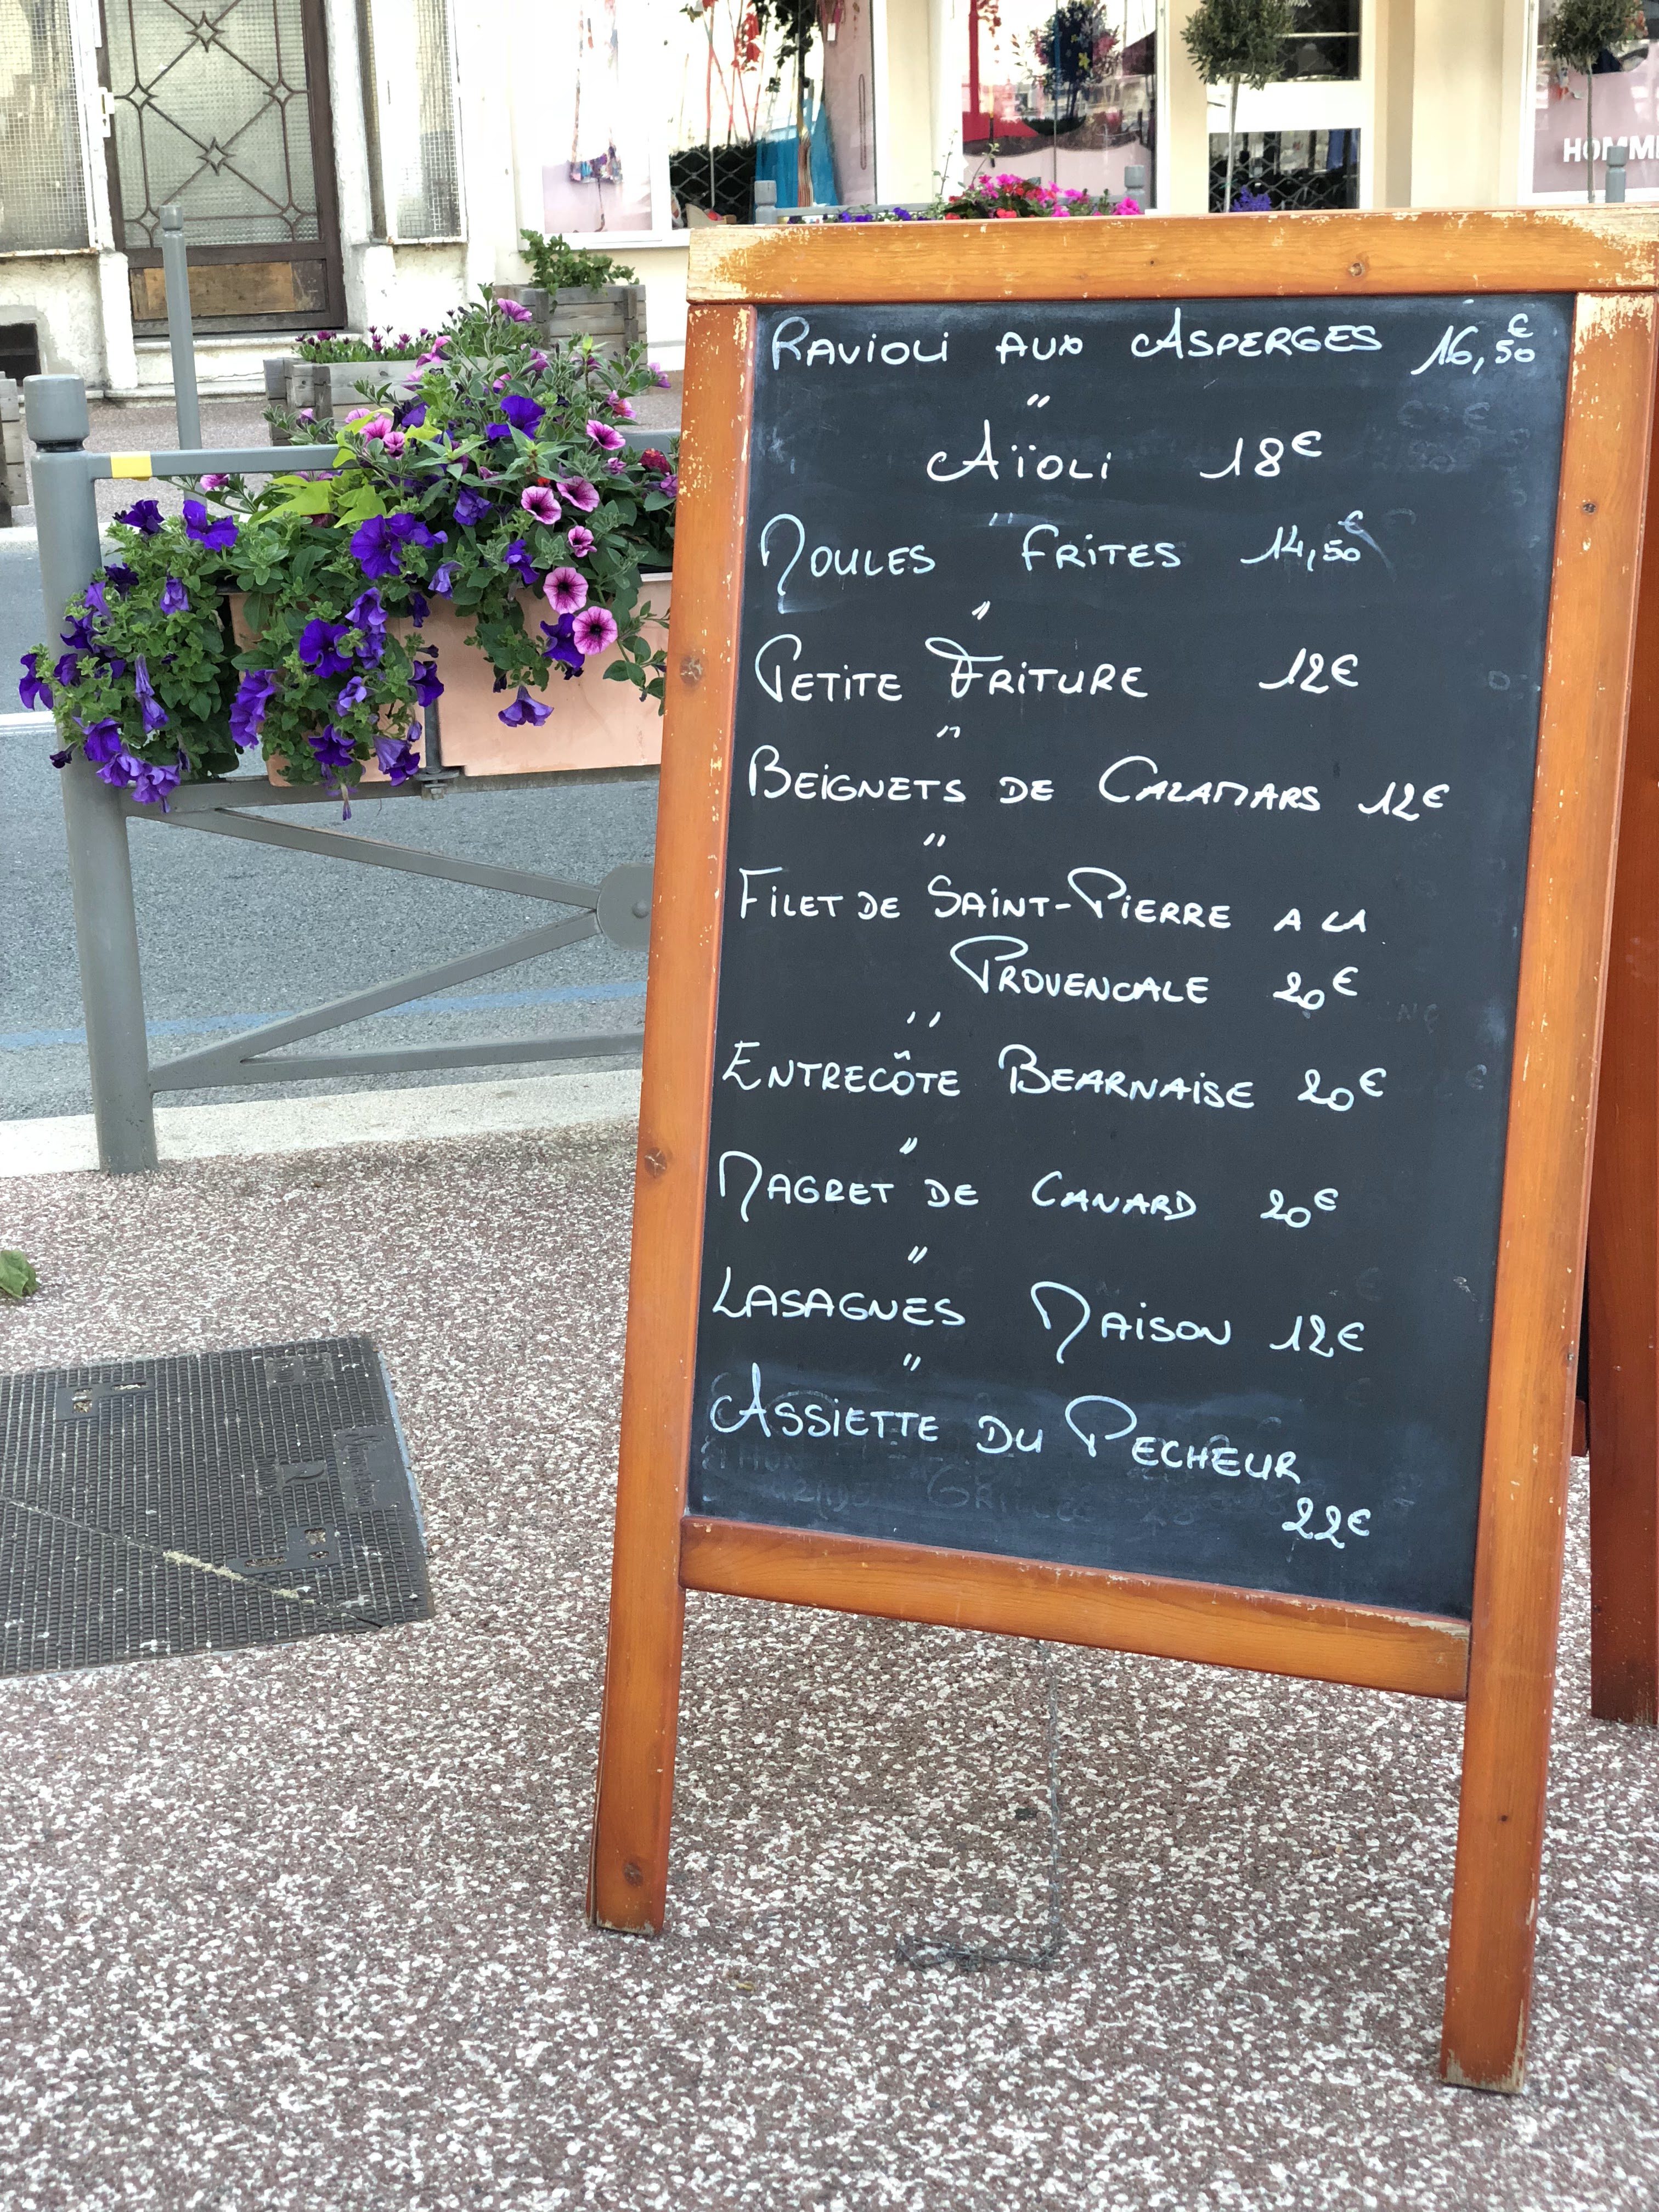 HOMME
RAVIOLI AUX ASPERGES 16,50€
"
AÏOLI 18€
"
MOULES FRITES 14,50€
"
PETITE FRITURE 12€
"
BEIGNETS DE CALAMARS 12€
"
FILET DE SAINT-PIERRE A LA
PROVENCALE 20€
"
ENTRECÔTE BEARNAISE 20€
"
MAGRET DE CANARD 20€
"
LASAGNES MAISON 12€
"
ASSIETTE DU PECHEUR
22€